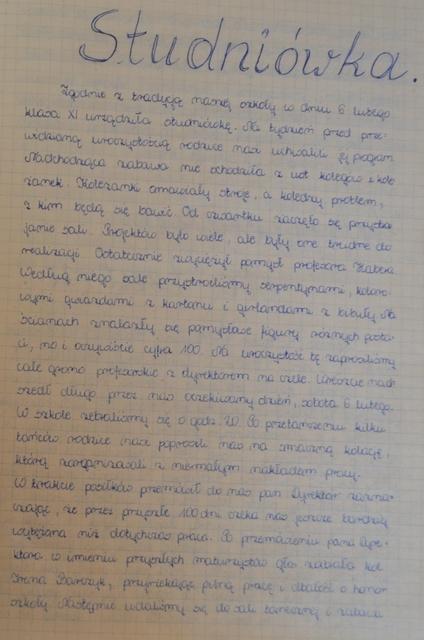 Studniówka.
Zgodnie z tradycją naszej szkoły w dniu 6 lutego
klasa XI urządziła studniówkę. Na tydzień przed prze-
widzianą uroczystością rodzice nasi uchwalili jej program
Nadchodząca zabawa nie schodziła z ust kolegów i kole
żanek. Koleżanki omawiały stroje, a koledzy problem,
z kim będą się bawić. Od czwartku zaczęło się przystra
janie sali. Projektów było wiele, ale były one trudne do
realizacji. Ostatecznie zwyciężył pomysł profesora
Według niego salę przystroiliśmy serpentynami, koloro-
wymi girlandami z kartonu i girlandami z bibuły Na
ścianach znalazły się pomysłowe figury różnych posta-
ci, no i oczywiście cyfra 100. Na uroczystość tę zaprosiliśmy
całe grono profesorskie z dyrektorem na czele. Wreszcie nad-
szedł długo przez nas oczekiwany dzień, sobota 6 lutego.
W szkole zebraliśmy się o godz. 20. Po przetańczeniu kilku
tańców rodzice nasi poprosili nas na smaczną kolację,
którą zorganizowali z niemałym nakładem pracy.
W trakcie posiłków przemówił do nas pan Dyrektor zazna-
czając, że przez przyszłe 100 dni czeka nas jeszcze bardziej
wytężona niż dotychczas praca. Po przemówieniu pana Dyre-
ktora w imieniu przyszłych maturzystów głos zabrała kol.
Irena przyrzekając pilną pracę i dbałość o honor
szkoły. Następnie udaliśmy się do sali tanecznej i zabawa